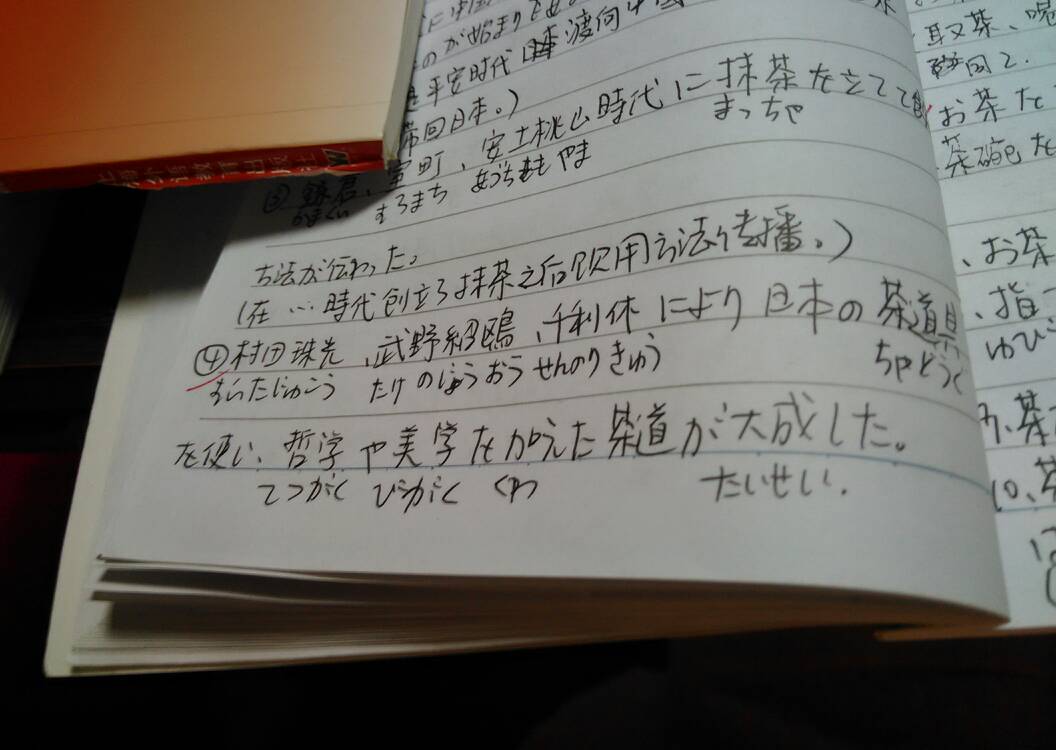 のが始まり
平安時代 渡向中国
帯回日本。)
③鎌倉、室町、安土桃山時代に抹茶を立てて
むろまち
まっちゃ
方法が伝わった。
(在…時代創立了抹茶之后飲用方法传播。)
④村田珠光、武野紹鴎、千利休により日本の茶道具
むらたじゅこう たけのじょうおう せんのりきゅう ちゃどうぐ
を使い、哲学や美学をかえた茶道が大成した。
てつがく びがく くわ たいせい.
取茶、
お茶を
茶碗を
、お茶
、指
ゆび
9、茶
10、茶
上海外语教育出版社